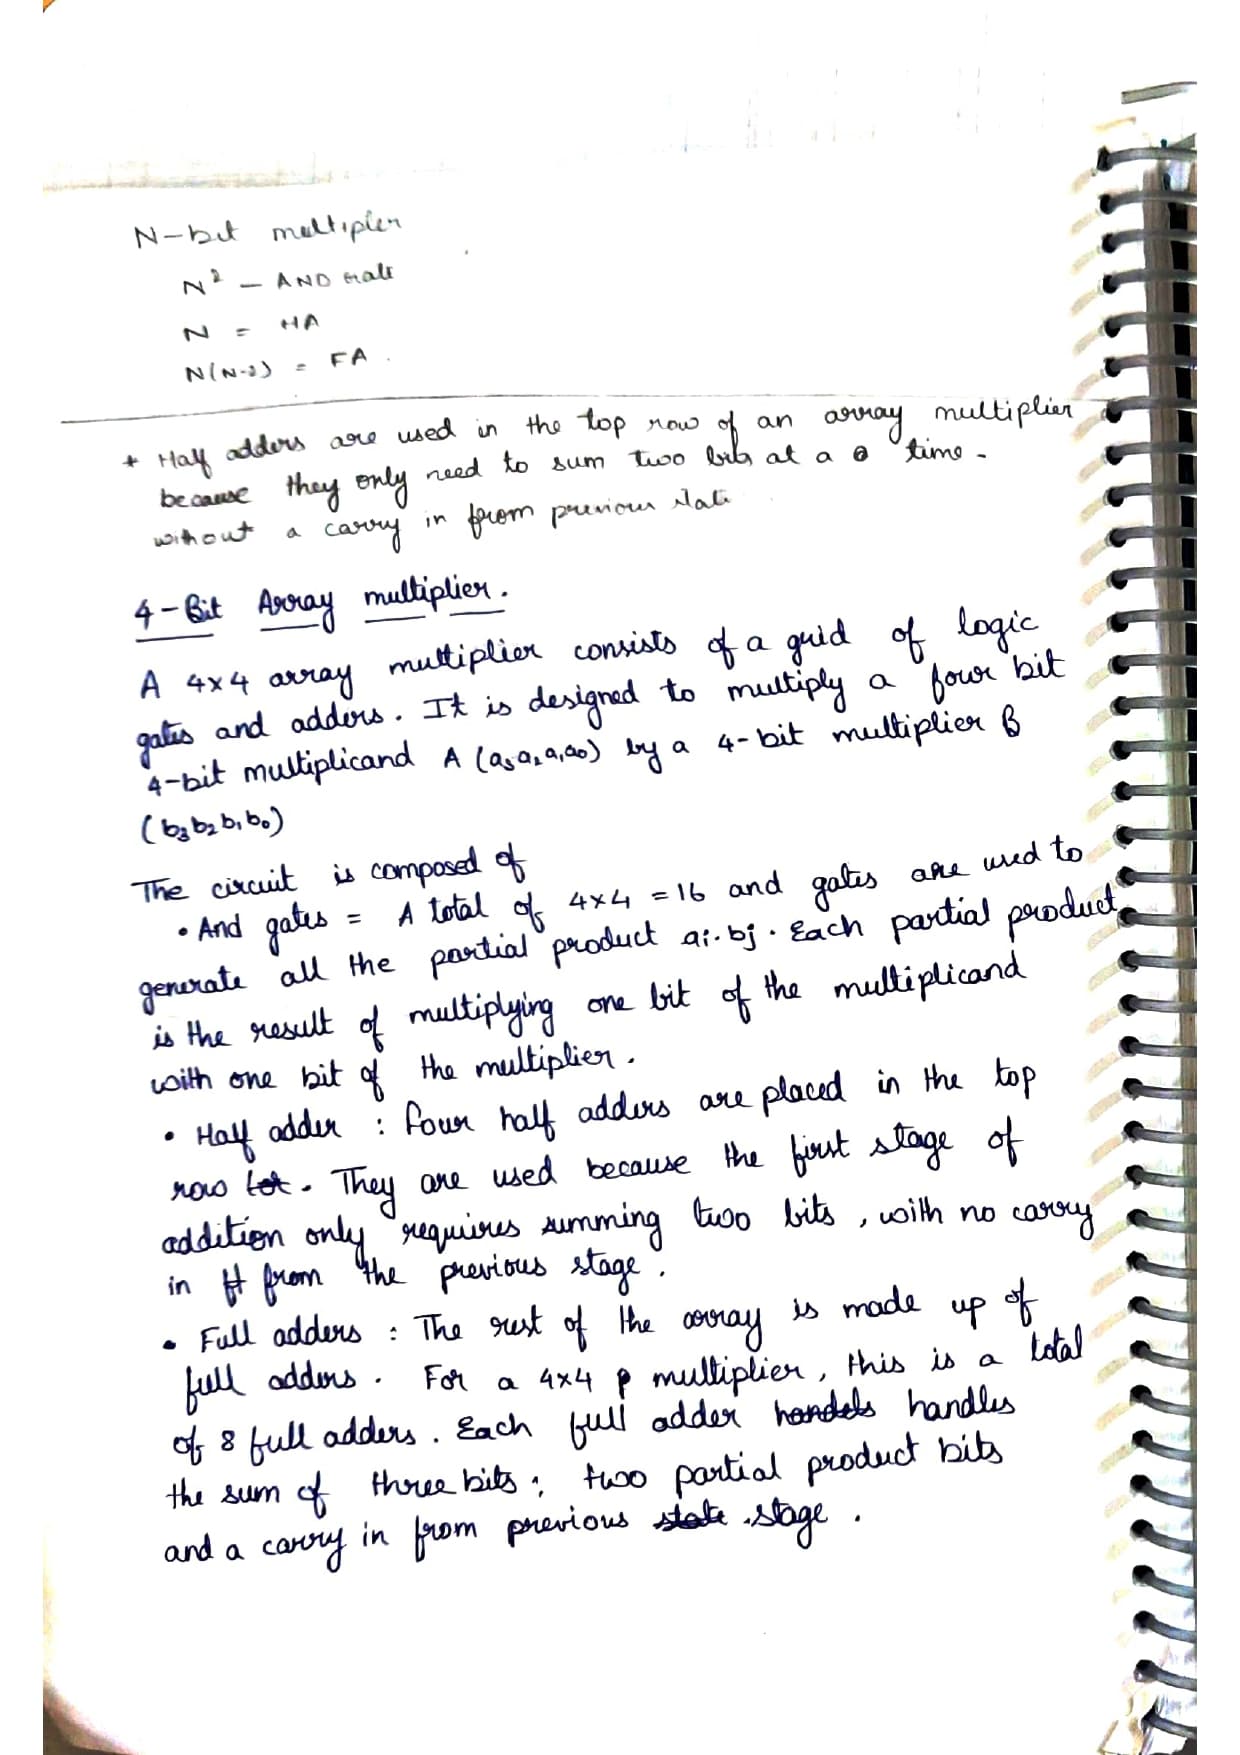 N-bit multipler
N² - AND Gate
N = HA
N(N-2) = FA.
* Half adders are used in the top row of an array multiplier
because they only need to sum two bits at a time -
without a carry in from previous state
4-Bit Array multiplier.
A 4x4 array multiplier consists of a grid of logic
gates and adders. It is designed to multiply a four bit
4-bit multiplicand A (a₃a₂a₁a₀) by a 4-bit multiplier B
(b₃b₂b₁b₀)
The circuit is composed of
• And gates = A total of 4x4 = 16 and gates are used to
generate all the partial product ai.bj. Each partial product
is the result of multiplying one bit of the multiplicand
with one bit of the multiplier.
• Half adder : four half adders are placed in the top
row. They are used because the first stage of
addition only requires summing two bits, with no carry
in from the previous stage.
• Full adders : The rest of the array is made up of
full adders. For a 4x4 multiplier, this is a total
of 8 full adders. Each full adder handels handles
the sum of three bits; two partial product bits
and a carry in from previous state stage.